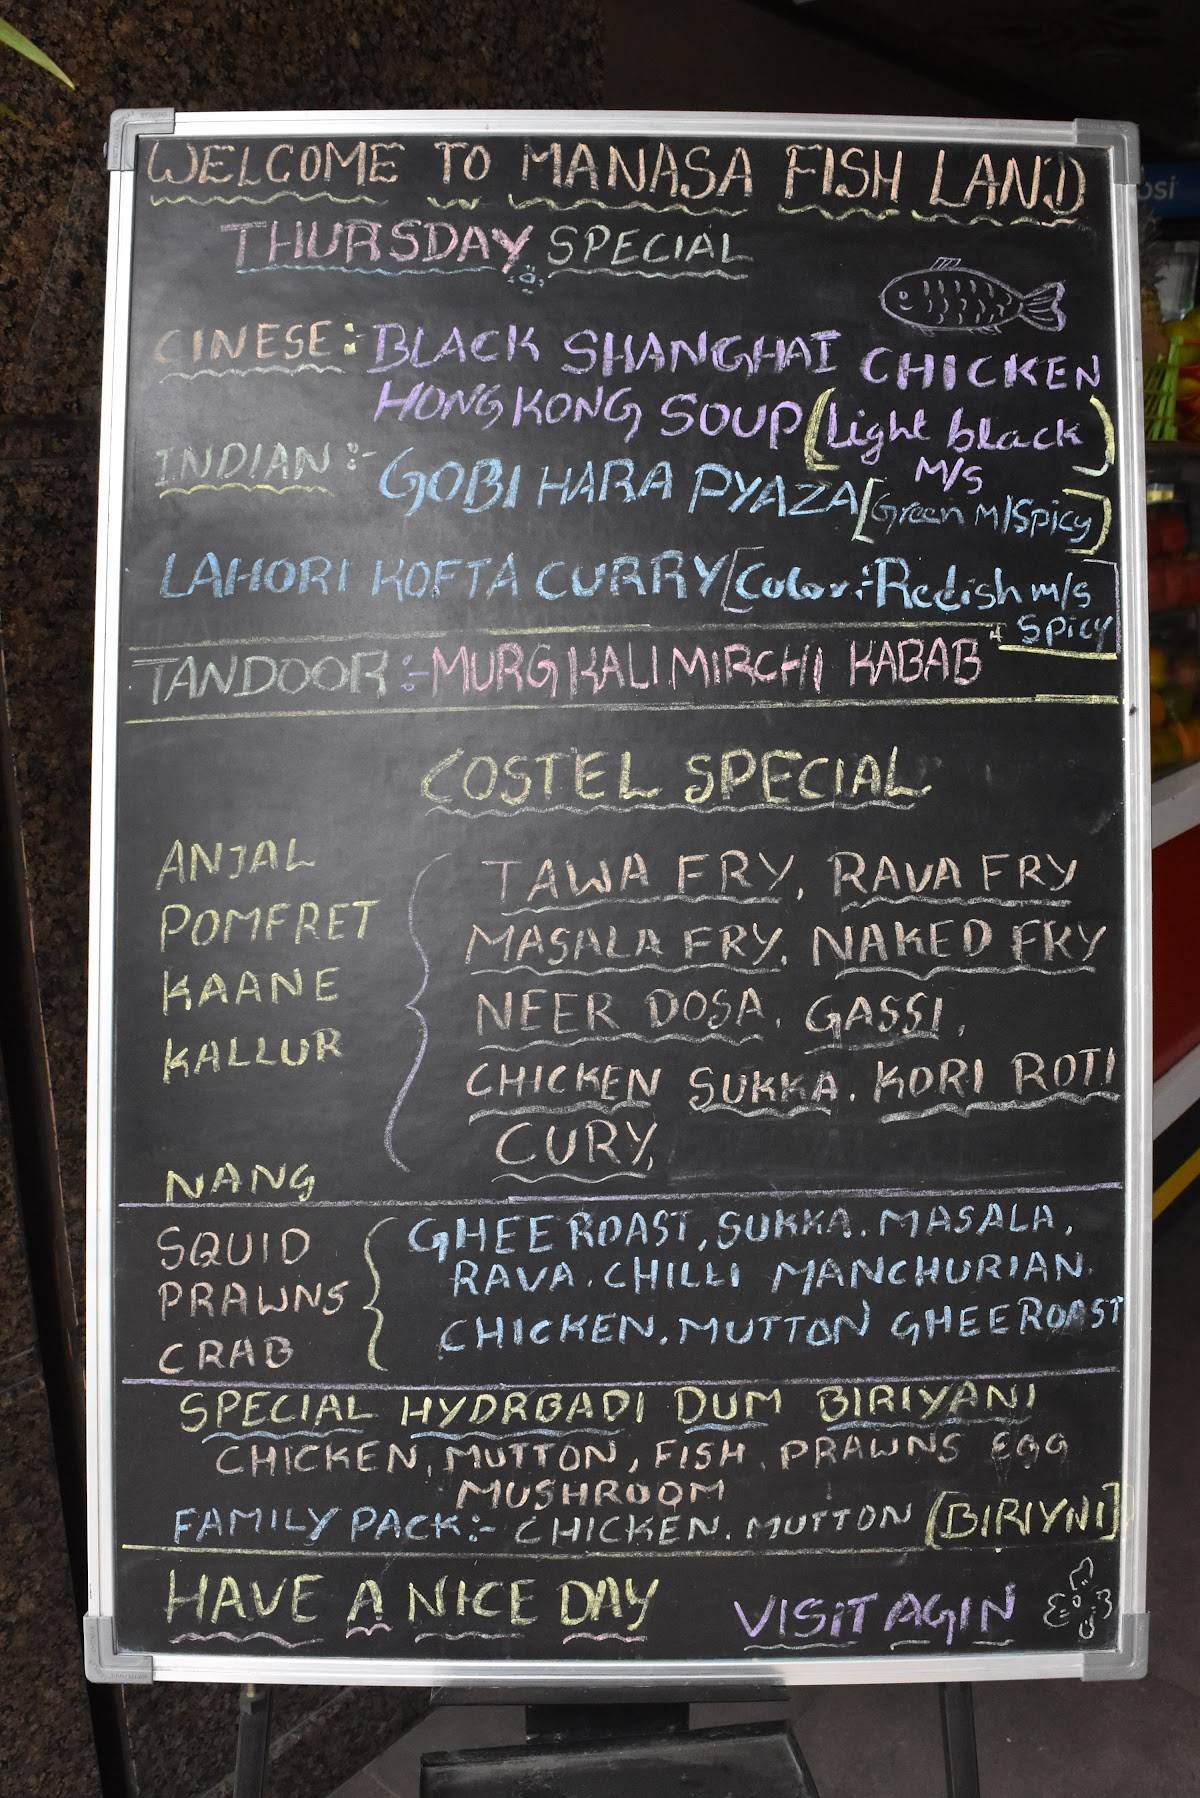 WELCOME TO MANASA FISH LAND
THURSDAY SPECIAL
CINESE:- BLACK SHANGHAI CHICKEN
HONGKONG SOUP [Light black
M/S]
INDIAN:- GOBI HARA PYAZA [Green M/Spicy]
LAHORI KOFTA CURRY [Color:- Redish m/s
Spicy]
TANDOOR:- MURG KALI MIRCHI KABAB
COSTEL SPECIAL
ANJAL
POMFRET
KAANE
KALLUR
NANG
TAWA FRY, RAVA FRY
MASALA FRY, NAKED FRY
NEER DOSA, GASSI,
CHICKEN SUKKA. KORI ROTI
CURY,
SQUID
PRAWNS
CRAB
GHEE ROAST, SUKKA. MASALA,
RAVA. CHILLI MANCHURIAN.
CHICKEN. MUTTON GHEE ROAST
SPECIAL HYDRBADI DUM BIRIYANI
CHICKEN, MUTTON, FISH, PRAWNS EGG
MUSHROOM
FAMILY PACK:- CHICKEN. MUTTON [BIRIYNI]
HAVE A NICE DAY VISIT AGIN
psi